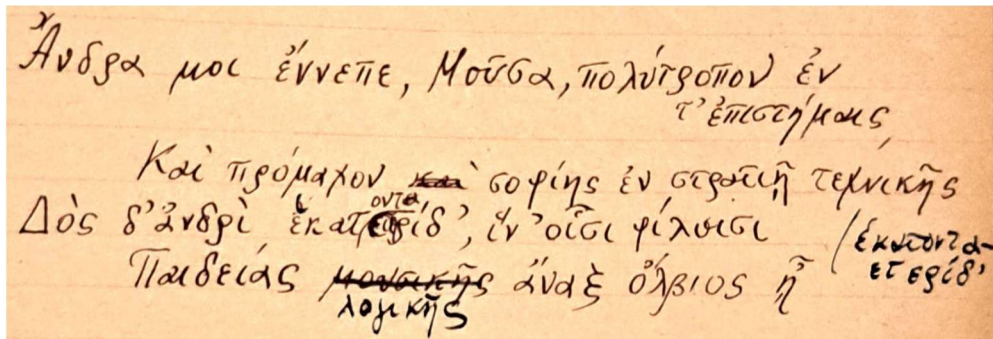 Ἄνδρα μοι ἔννεπε, Μοῦσα, πολύτροπον ἐν
τ’ ἐπιστήμαις,
Καὶ πρόμαχον καὶ σοφίης ἐν στρατιῇ τεχνικῆς
οντα
Δὸς δ’ ἀνδρὶ ἑκατ ρίδ’, ἵν’ οἷσι φίλοισι
(ἑκατοντα-
ετερίδ’
Παιδείας μουσικῆς ἄναξ ὄλβιος ᾖ
λογικῆς